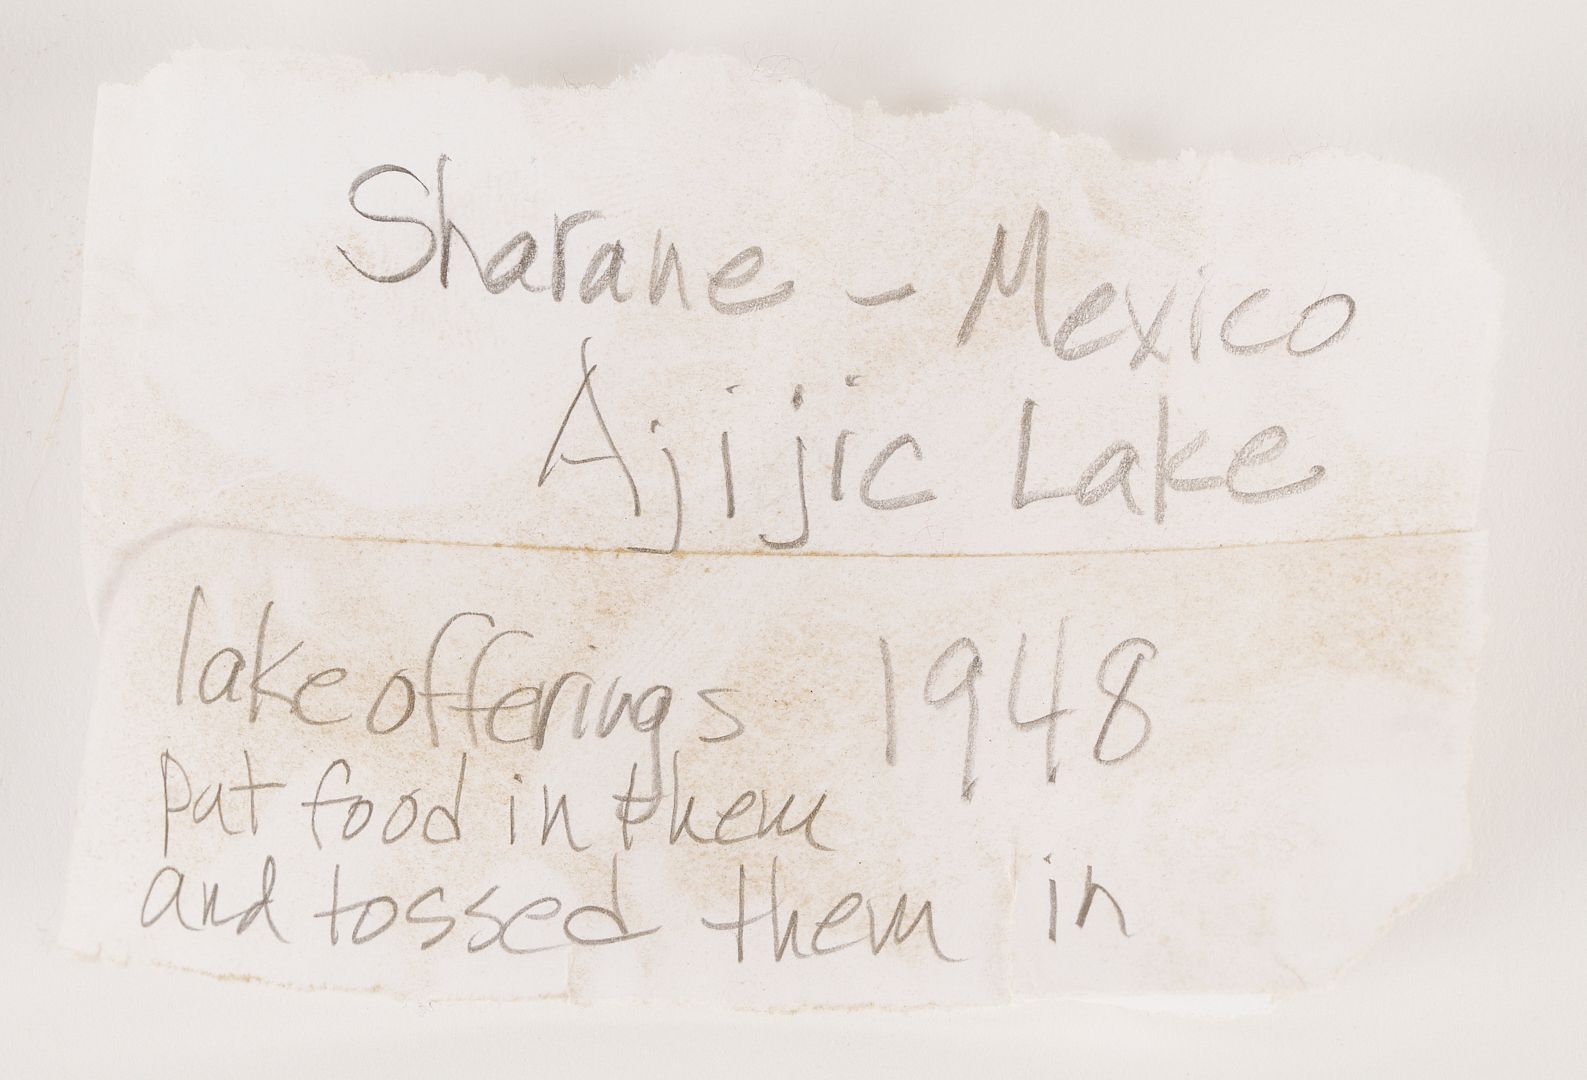 Sharane - Mexico
Ajijic Lake
lake offerings 1948
put food in them
and tossed them in